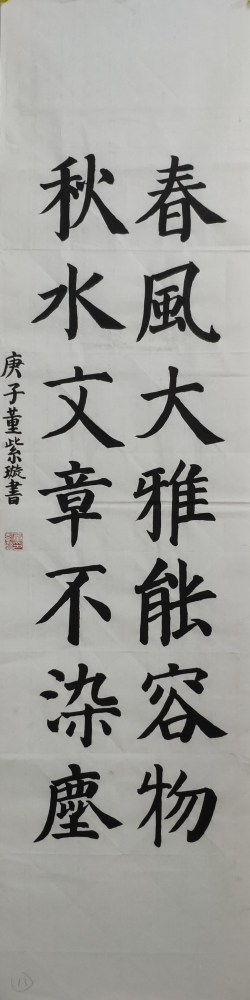 春風大雅能容物
秋水文章不染塵
庚子董紫璇書
13